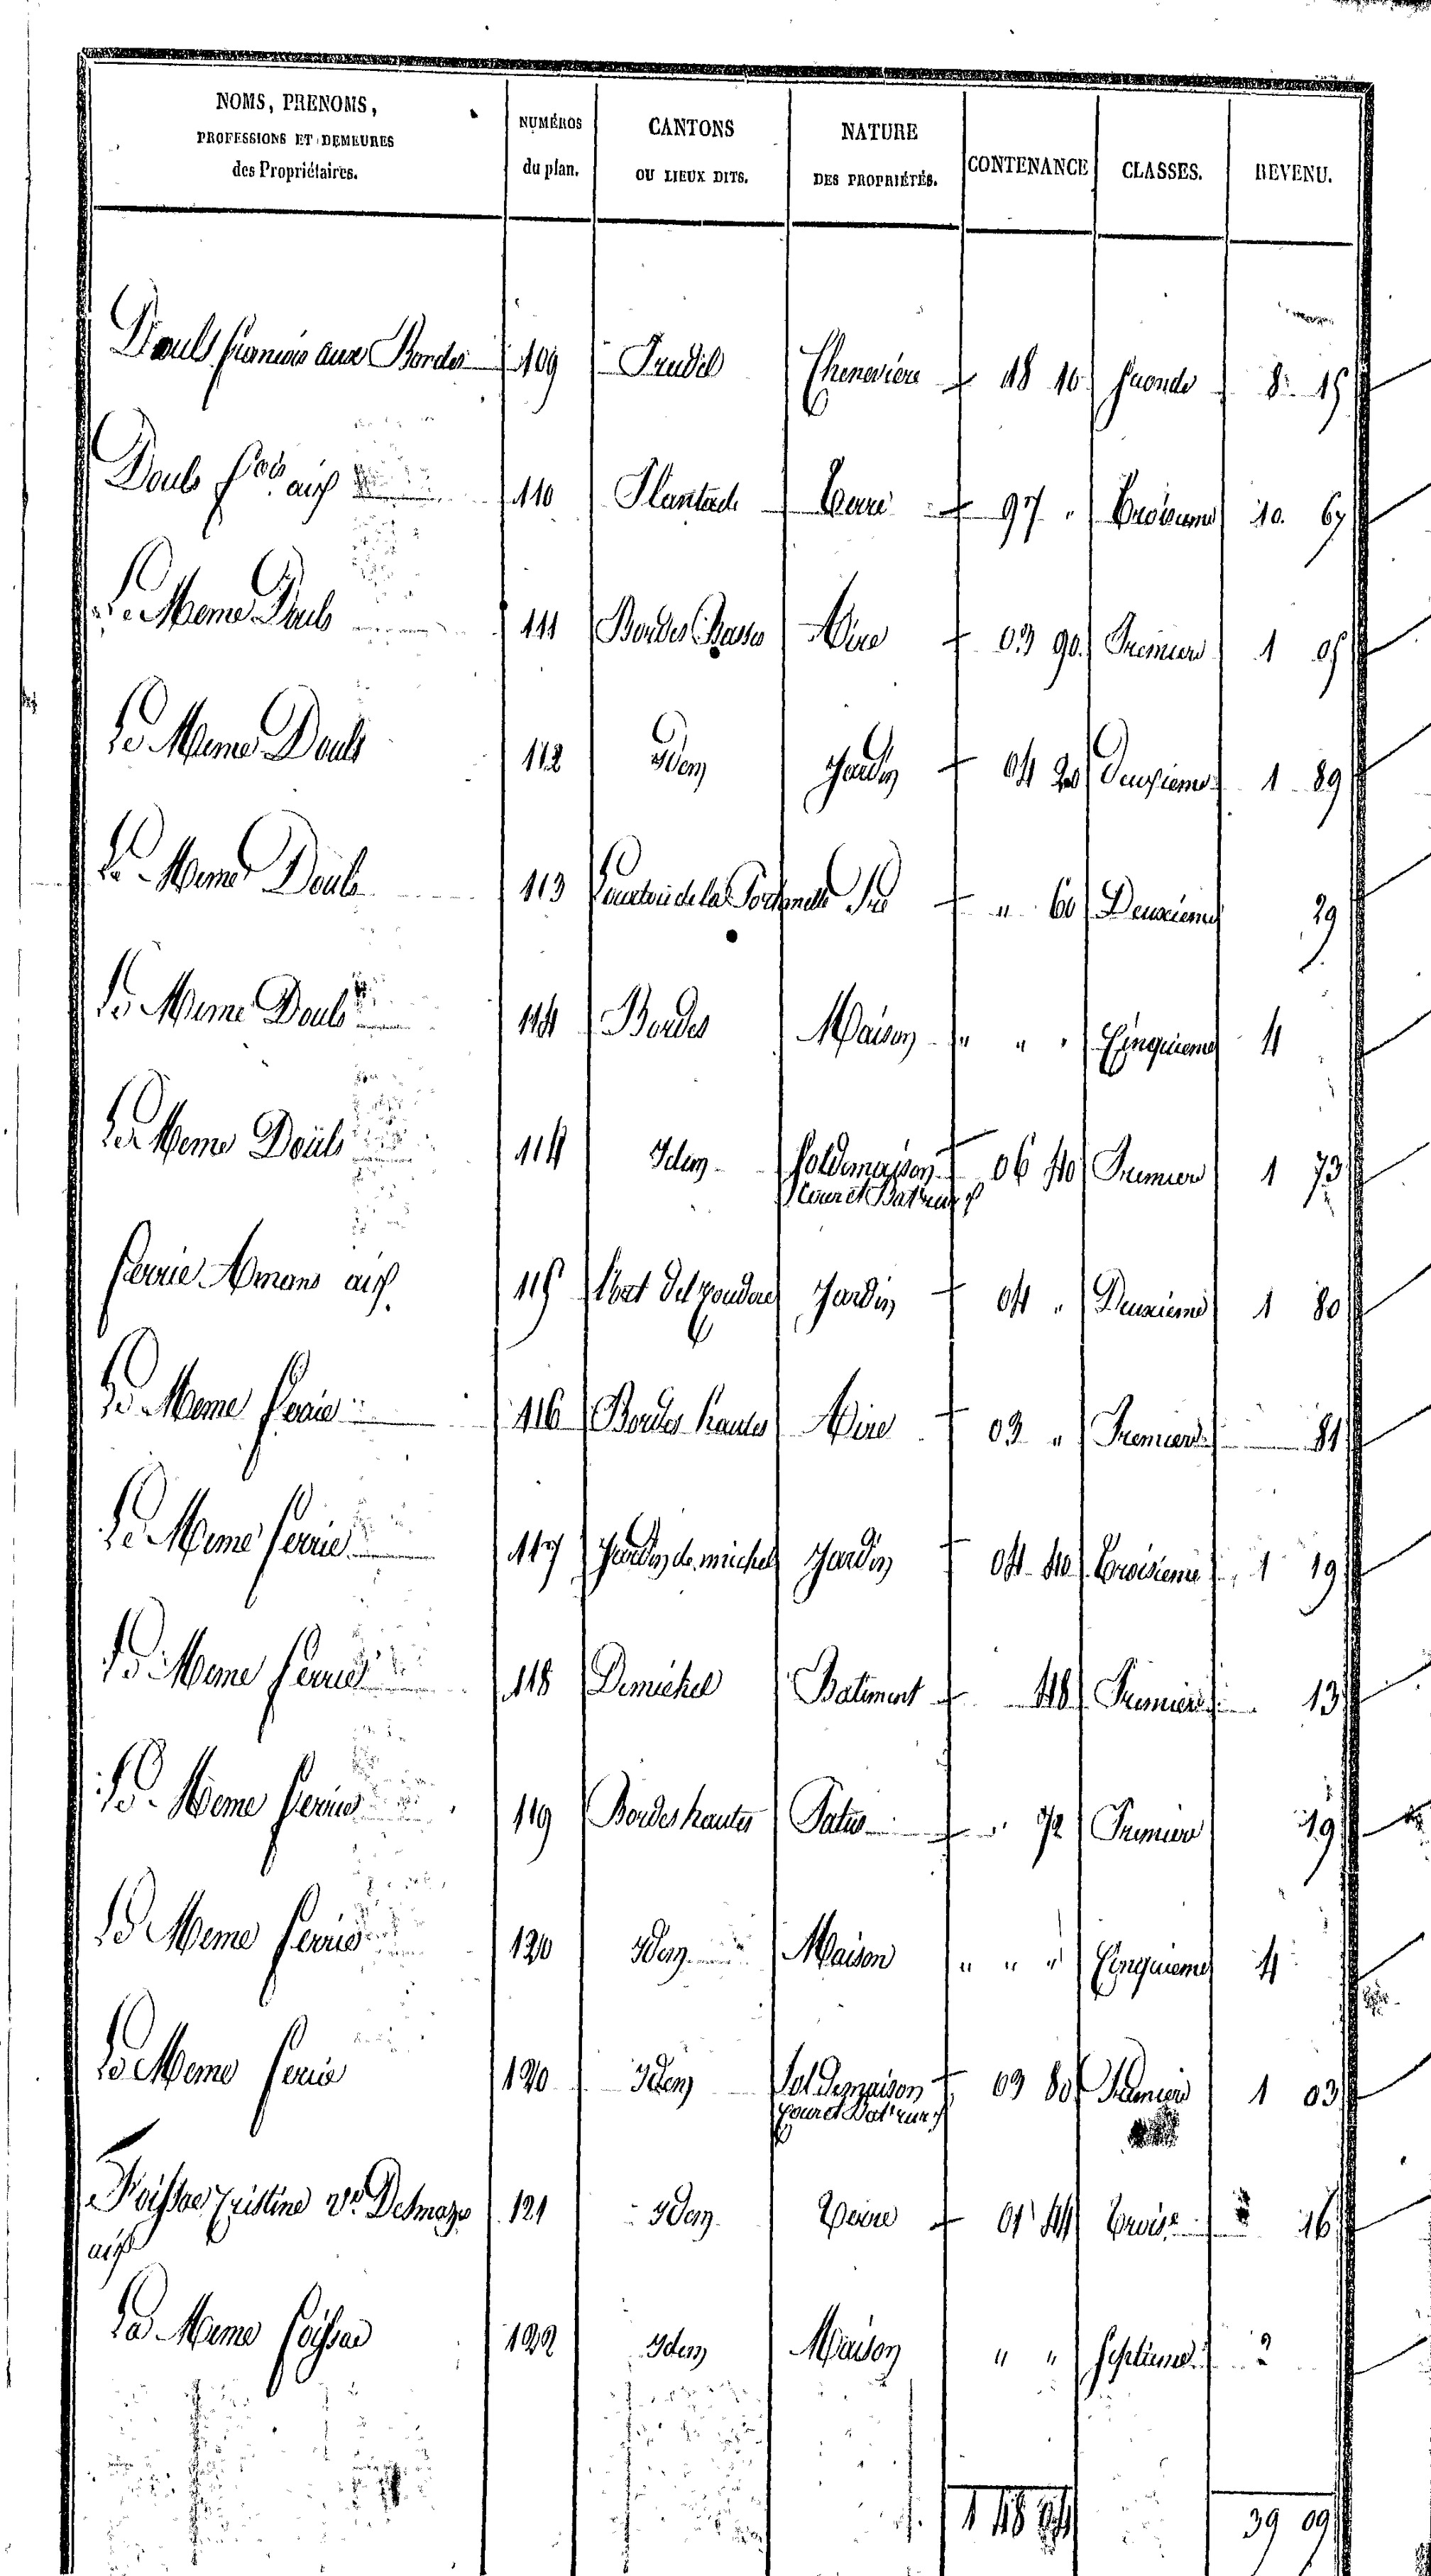 NOMS, PRENOMS,
PROFESSIONS ET DEMEURES
des Propriétaires.
NUMÉROS
du plan.
CANTONS
OU LIEUX DITS.
NATURE
DES PROPRIÉTÉS.
CONTENANCE
CLASSES.
REVENU.
Douls francois aux Bordes 109 Pradel Cheneviere 18 10 seconde 8 15
Douls fcois aux 110 Plantade Terre 97 " Troisieme 10 67
Le Meme Douls 111 Bordes Basses Aire 03 90 Premiere 1 05
Le Meme Douls 112 Idem Jardin 04 20 Deuxieme 1 89
Le Meme Douls 113 de la Pré " 60 Deuxieme 29
Le Meme Douls 114 Bordes Maison " " " Cinquieme 4
Le Meme Douls 114 Idem Sol de maison 06 40 Premiere 1 73
Cour et Bat. rur.
ferrie Amans aux 115 Jardin 04 " Deuxieme 1 80
Le Meme ferrie 116 Bordes hautes Aire 03 " Premiere 81
Le Meme ferrie 117 Jardin de michel Jardin 04 40 Troisieme 1 19
Le Meme ferrie 118 Demichel Batiment 48 Premiere 13
Le Meme ferrie 119 Bordes hautes Patus " 72 Premiere 19
Le Meme ferrie 120 Idem Maison " " " Cinquieme 4
Le Meme ferrie 120 Idem Sol de maison 03 80 Premiere 1 03
Cour et Bat. rur.
Foissac Cristine Ve Delmazo 121 Idem Terre 01 44 Trois.e 16
aux
La Meme foissac 122 Idem Maison " " septieme 2
1 48 94 39 09